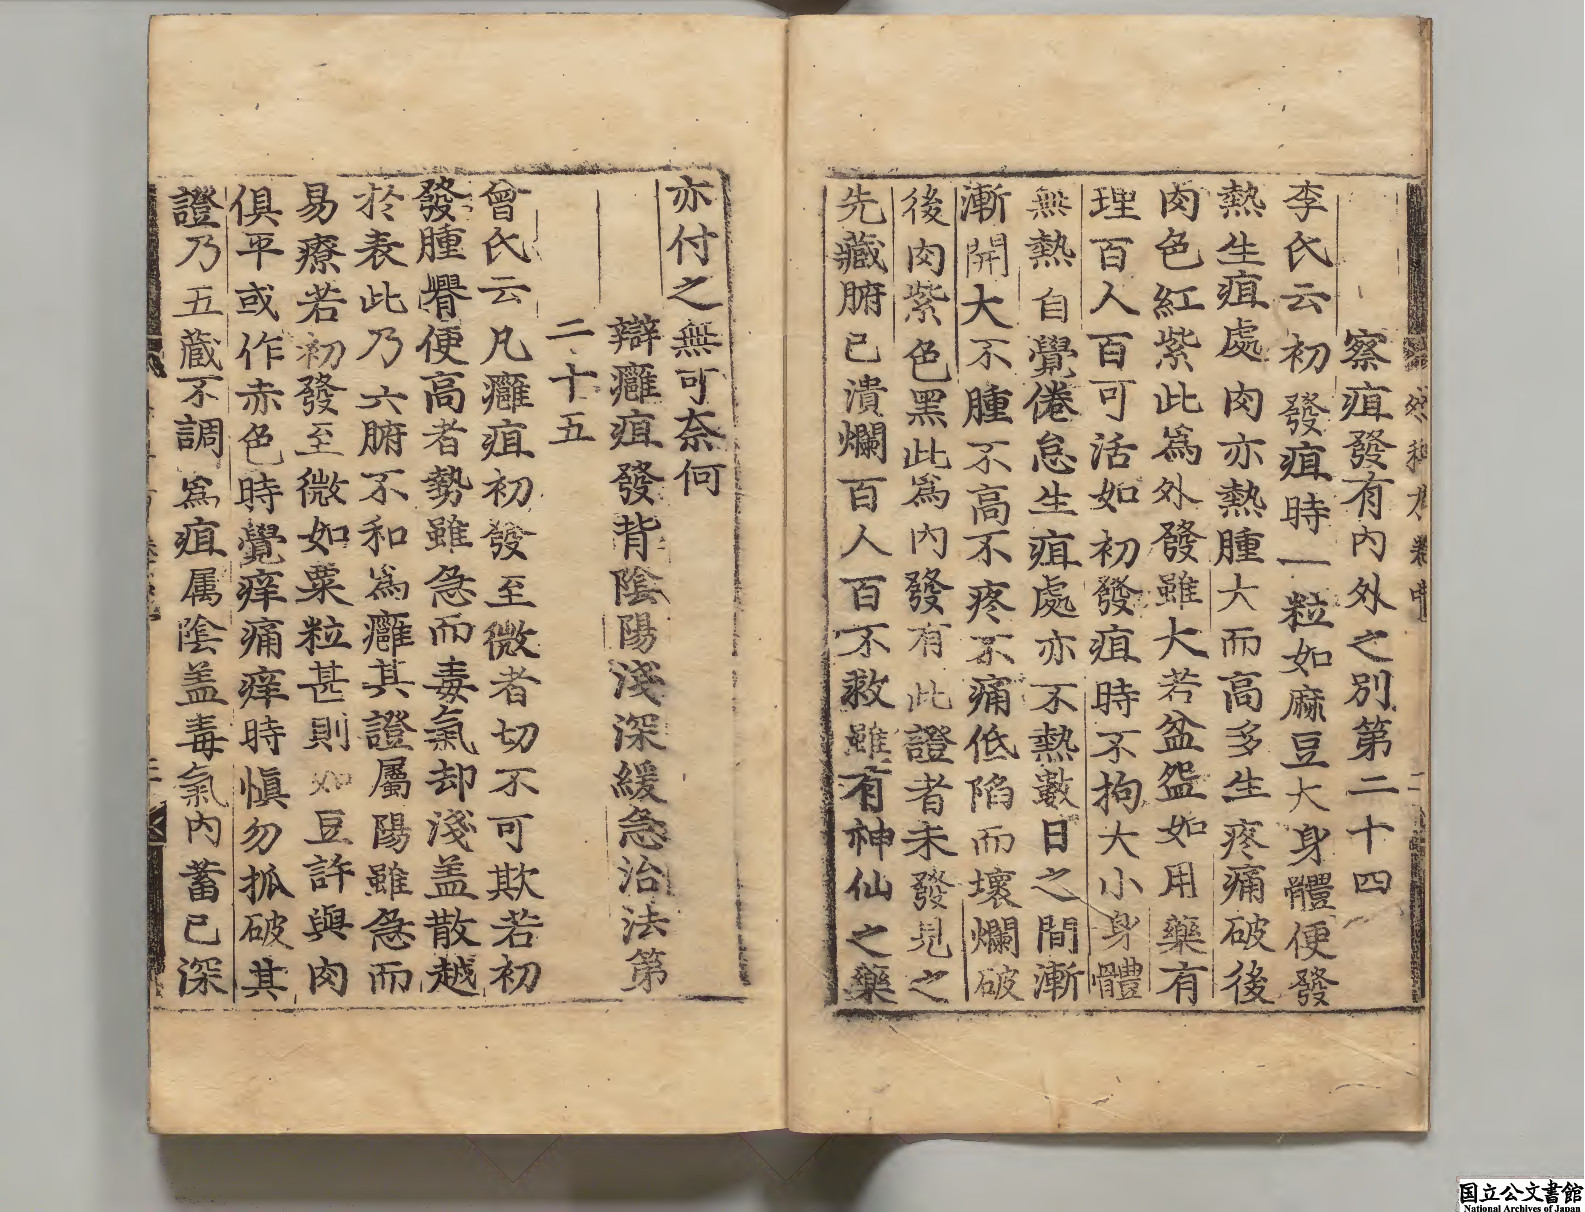 察疽發有內外之別第二十四
李氏云初發疽時一粒如麻豆大身體便發
熱生疽處肉亦熱腫大而高多生疼痛破後
肉色紅紫此為外發雖大若盆盌如用藥有
理百人百可活如初發疽時不拘大小身體
無熱自覺倦怠生疽處亦不熱數日之間漸
漸開大不腫不高不疼不痛低陷而壞爛破
後肉紫色黑此為內發有此證者未發見之
先藏腑已潰爛百人百不救雖有神仙之藥
亦付之無可奈何
辯癰疽發背陰陽淺深緩急治法第
二十五
曾氏云凡癰疽初發至微者切不可欺若初
發腫臖便高者勢雖急而毒氣却淺盖散越
於表此乃六腑不和為癰其證屬陽雖急而
易療若初發至微如粟粒甚則如豆許與肉
俱平或作赤色時覺痒痛痒時慎勿抓破其
證乃五藏不調為疽属陰盖毒氣內蓄已深
国立公文書館
National Archives of Japan